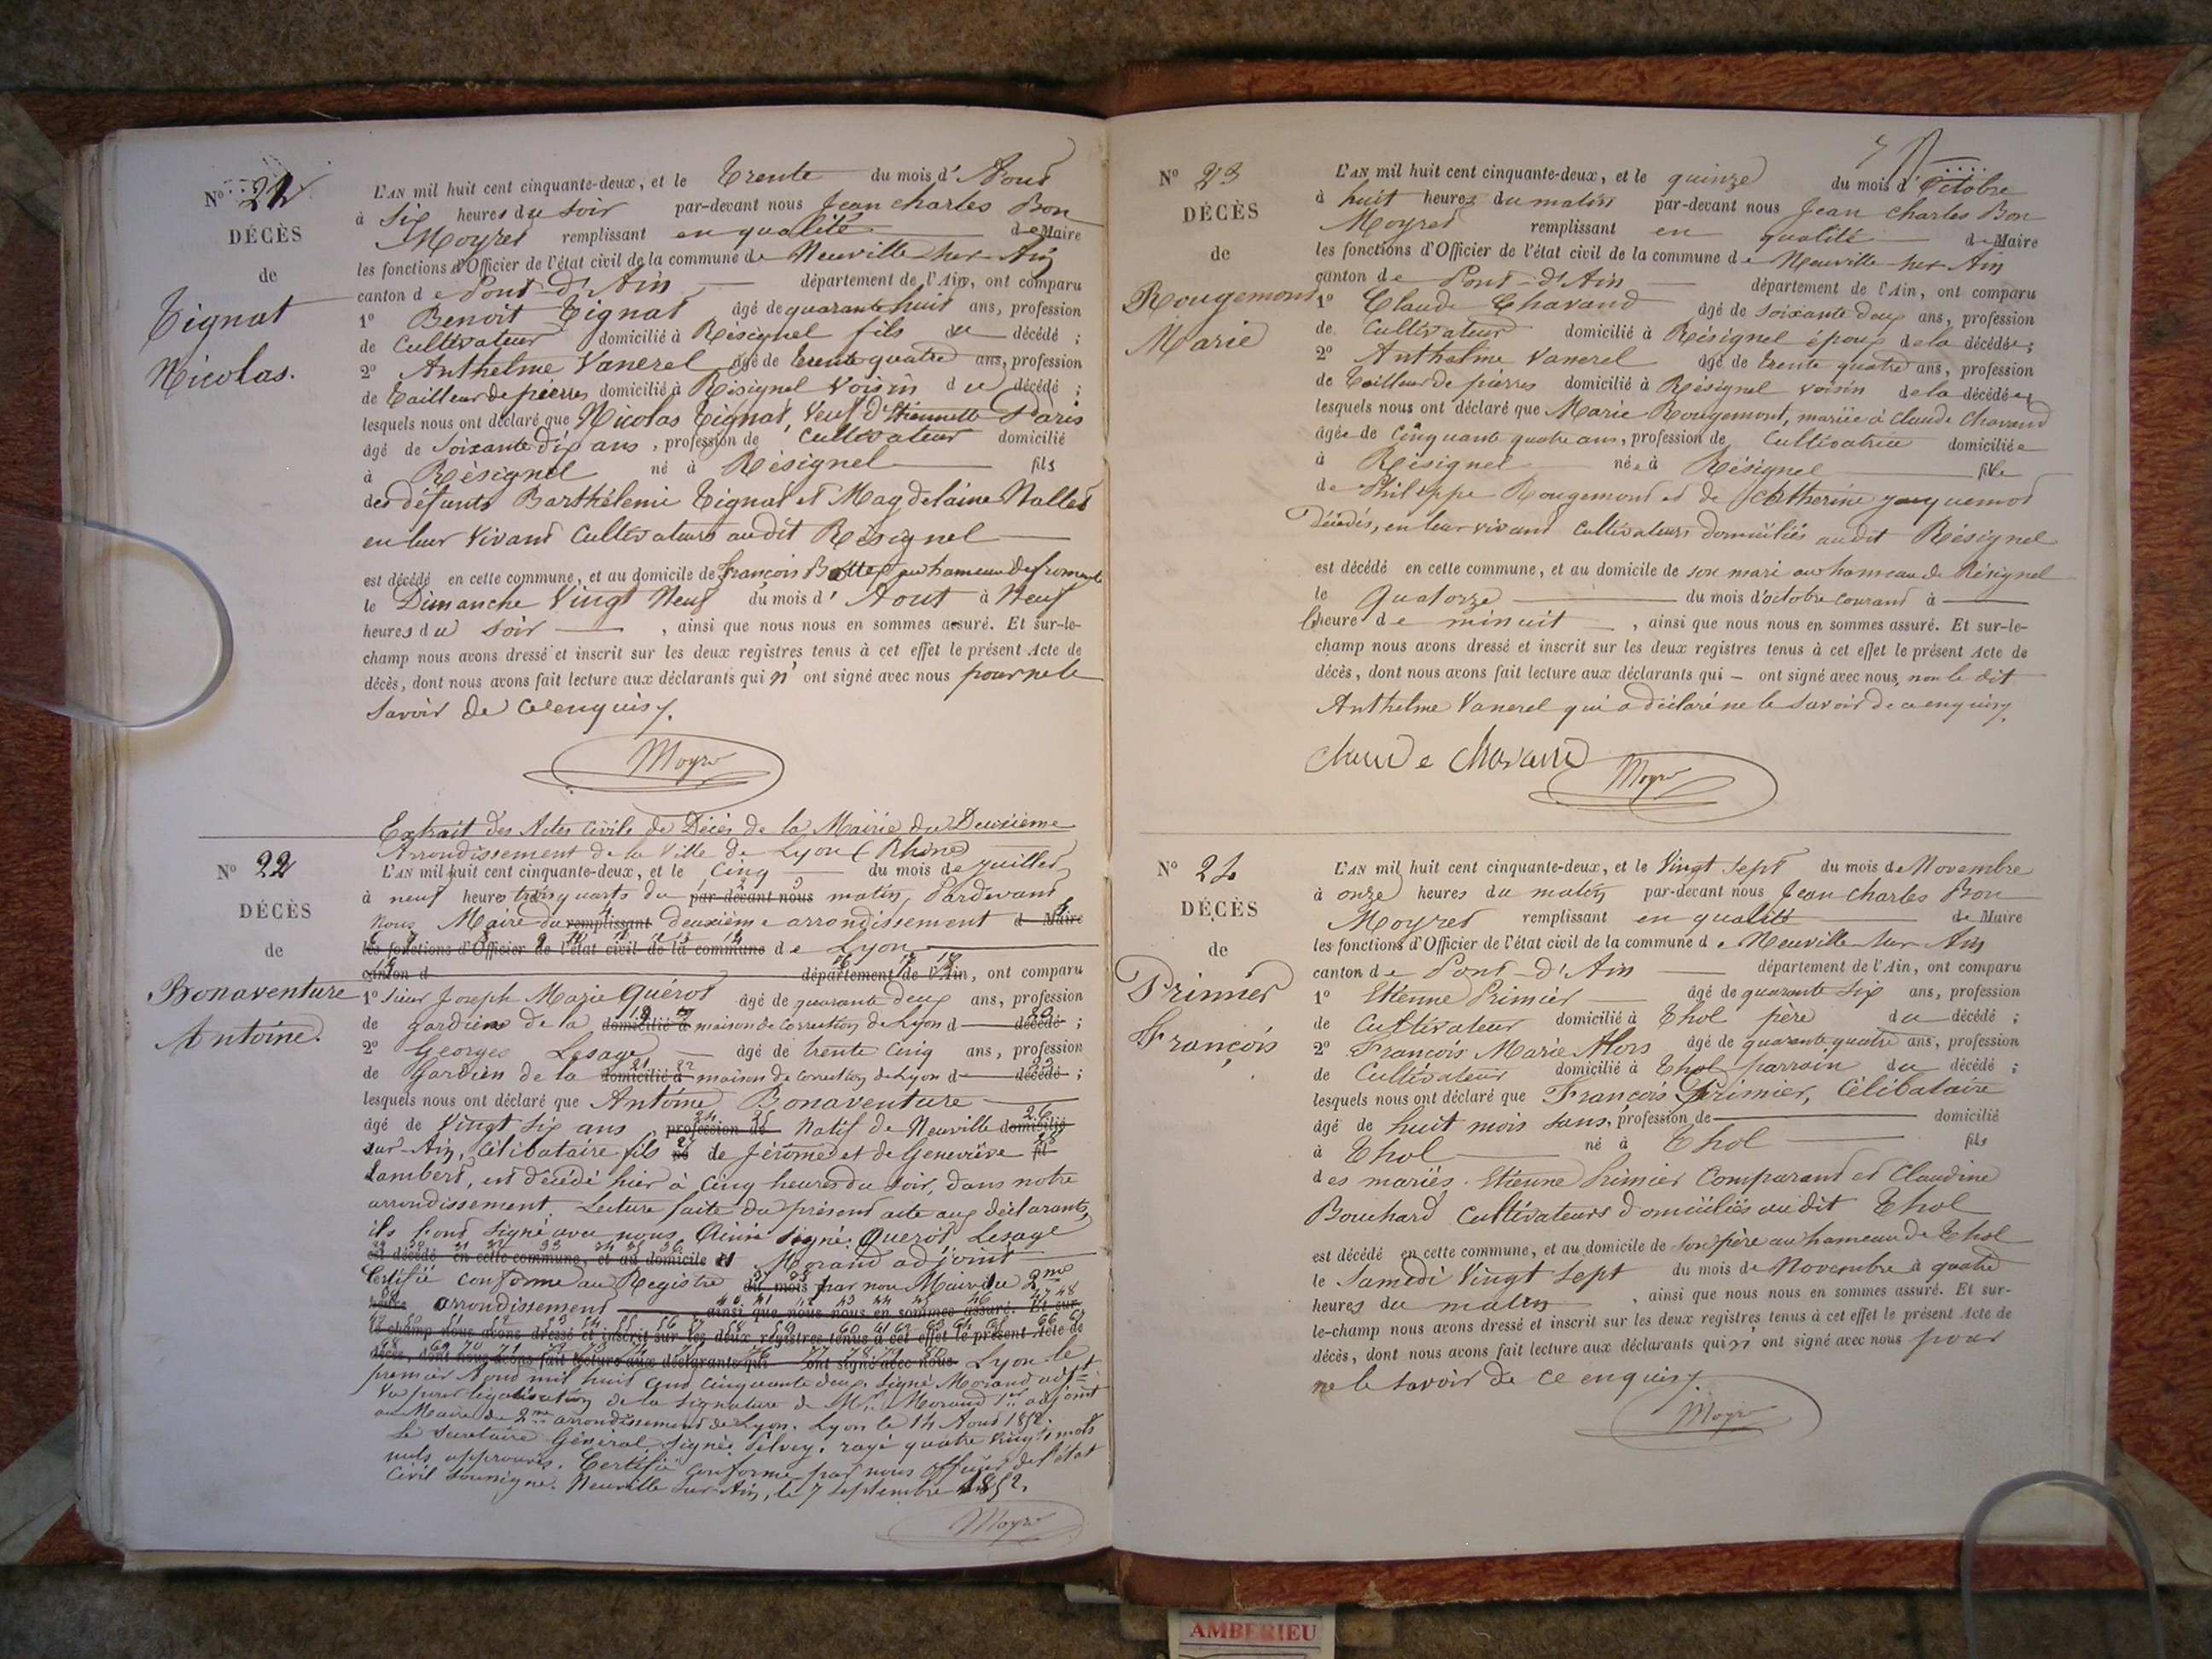 No 21
DÉCÈS
de
Tignat
Nicolas.
L'AN mil huit cent cinquante-deux, et le Trente du mois d'Aout
à Six heures du soir par-devant nous Jean Charles Bon
Moyret remplissant en qualité de Maire
les fonctions d'Officier de l'état civil de la commune de Neuville sur Ain
canton de Pont-d'Ain département de l'Ain, ont comparu
1o Benoit Tignat âgé de quarante huit ans, profession
de Cultivateur domicilié à Résignel fils du décédé ;
2o Anthelme Vanerel âgé de trente quatre ans, profession
de Tailleur de pierres domicilié à Résignel voisin du décédé ;
lesquels nous ont déclaré que Nicolas Tignat, Veuf d'Etiennette Paris
âgé de soixante dix ans, profession de Cultivateur domicilié
à Résignel né à Résignel fils
des défunts Barthélemie Tignat et Magdelaine Nallet
en leur vivant Cultivateurs audit Résignel
est décédé en cette commune, et au domicile de François au hameau de fromente
le Dimanche Vingt Neuf du mois d'Aout à Neuf
heures du soir, ainsi que nous nous en sommes assuré. Et sur-le-
champ nous avons dressé et inscrit sur les deux registres tenus à cet effet le présent Acte de
décès, dont nous avons fait lecture aux déclarants qui n'ont signé avec nous pour ne le
savoir de ce enquis.
Moyret
Extrait des Actes Civils de Décès de la Mairie du Deuxième
Arrondissement de la Ville de Lyon (Rhône)
No 22
DÉCÈS
de
Bonaventure
Antoine.
L'AN mil huit cent cinquante-deux, et le Cinq du mois de juillet
à neuf heures trois quarts du par-devant nous matin, Pardevant
Nous Maire du remplissant deuxième arrondissement de Maire
les fonctions d'Officier de l'état civil de la commune de Lyon
canton d département de l'Ain, ont comparu
1o Sieur Joseph Marie Quérot âgé de quarante deux ans, profession
de gardien de la domicilié à maison de correction de Lyon d décédé ;
2o Georges Lesage âgé de trente cinq ans, profession
de Gardien de la domicilié à maison de correction de Lyon d décédé ;
lesquels nous ont déclaré que Antoine Bonaventure
âgé de Vingt six ans, profession de Natif de Neuville domicilié
sur-Ain, Célibataire fils né de Jérôme et de Geneviève fil
Lambert, est décédé hier à cinq heures du soir, dans notre
arrondissement. Lecture faite du présent acte aux déclarants,
ils l'ont signé avec nous Ainsi signé Querot, Lesage
est décédé en cette commune, et au domicile et Morand adjoint
Certifié conforme au Registre du mois par nou Maire du 2me
heures arrondissement ainsi que nous nous en sommes assuré. Et sur-
le-champ nous avons dressé et inscrit sur les deux registres tenus à cet effet le présent Acte de
décès, dont nous avons fait lecture aux déclarants qui ont signé avec nous Lyon le
premier Aout mil huit cent cinquante deux. Signé Morand adjt
Vu pour légalisation de la signature de Mr Morand 1er adjoint
au Maire du 2me arrondissement de Lyon. Lyon le 14 Aout 1852.
Le Secrétaire Général signé. rayé quatre vingts mots
nuls approuvés. Certifié conforme par nous officier de l'état
civil soussigné. Neuville sur-Ain, le 7 septembre 1852.
Moyret
No 23
DÉCÈS
de
Rougemont
Marie
L'AN mil huit cent cinquante-deux, et le quinze du mois d'Octobre
à huit heures du matin par-devant nous Jean Charles Bon
Moyret remplissant en qualité de Maire
les fonctions d'Officier de l'état civil de la commune de Neuville sur Ain
canton de Pont-d'Ain département de l'Ain, ont comparu
1o Claude Chavand âgé de soixante deux ans, profession
de Cultivateur domicilié à Résignel époux de la décédée ;
2o Anthelme Vanerel âgé de trente quatre ans, profession
de Tailleur de pierres domicilié à Résignel voisin de la décédée
lesquels nous ont déclaré que Marie Rougemont, mariée à Claude Chavand
âgée de Cinquante quatre ans, profession de Cultivatrice domiciliée
à Résignel née à Résignel fille
de Philippe Rougemont et de Catherine Jacquemot
décédés, en leur vivant cultivateurs domiciliés audit Résignel
est décédé en cette commune, et au domicile de son mari au hameau de Résignel
le Quatorze du mois d'octobre courant à
l'heure de minuit, ainsi que nous nous en sommes assuré. Et sur-le-
champ nous avons dressé et inscrit sur les deux registres tenus à cet effet le présent Acte de
décès, dont nous avons fait lecture aux déclarants qui — ont signé avec nous, non le dit
Anthelme Vanerel qui a déclaré ne le savoir de ce enquis.
Claude Chavand
Moyret
No 24
DÉCÈS
de
Primier
François
L'AN mil huit cent cinquante-deux, et le Vingt sept du mois de Novembre
à onze heures du matin par-devant nous Jean Charles Bon
Moyret remplissant en qualité de Maire
les fonctions d'Officier de l'état civil de la commune de Neuville sur Ain
canton de Pont-d'Ain département de l'Ain, ont comparu
1o Etienne Primier âgé de quarante six ans, profession
de Cultivateur domicilié à Thol père du décédé ;
2o François Marie Alors âgé de quarante quatre ans, profession
de Cultivateur domicilié à Thol parrain du décédé ;
lesquels nous ont déclaré que François Primier, Célibataire
âgé de huit mois sans, profession de domicilié
à Thol né à Thol fils
des mariés Etienne Primier Comparant et Claudine
Bouchard Cultivateurs domiciliés audit Thol
est décédé en cette commune, et au domicile de son père au hameau de Thol
le Samedi Vingt sept du mois de Novembre à quatre
heures du matin, ainsi que nous nous en sommes assuré. Et sur-
le-champ nous avons dressé et inscrit sur les deux registres tenus à cet effet le présent Acte de
décès, dont nous avons fait lecture aux déclarants qui n'ont signé avec nous pour
ne le savoir de ce enquis.
Moyret
AMBERIEU